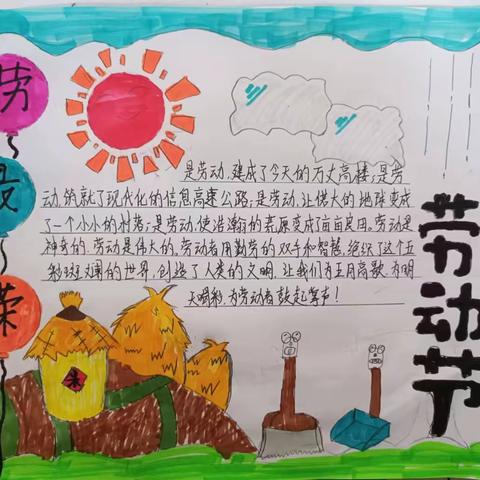 劳
最
荣
是劳动,建成了今天的万丈高楼;是劳
动,筑就了现代化的信息高速公路;是劳动,让偌大的地球变成
了一个小小的村落;是劳动,使浩瀚的荒原变成了亩亩良田。劳动是
神奇的,劳动是伟大的。劳动者用勤劳的双手和智慧,编织了这个五
彩斑斓的世界,创造了人类的文明。让我们为五月高歌,为明
天喝彩,为劳动者鼓起掌声!
劳动节